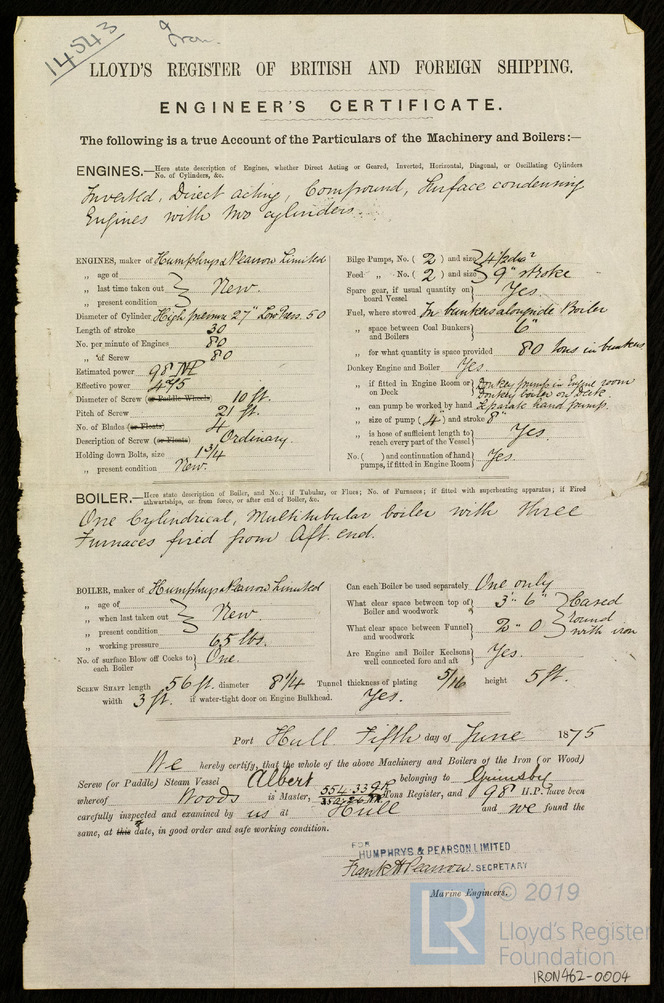 14543
Iron
LLOYD'S REGISTER OF BRITISH AND FOREIGN SHIPPING.
ENGINEER'S CERTIFICATE.
The following is a true Account of the Particulars of the Machinery and Boilers:—
ENGINES.—Here state description of Engines, whether Direct Acting or Geared, Inverted, Horizontal, Diagonal, or Oscillating Cylinders
No. of Cylinders, &c.
Inverted, Direct acting, Compound, Surface condensing
Engines with two cylinders.
ENGINES, maker of Humphrys & Pearson Limited
„ age of
„ last time taken out } New.
„ present condition
Diameter of Cylinder High pressure 27" Low Press. 50
Length of stroke 30
No. per minute of Engines 80
„ of Screw 80
Estimated power 98 NH
Effective power 475
Diameter of Screw (or Paddle Wheels) 10 ft.
Pitch of Screw 21 ft.
No. of Blades (or Floats) 4
Description of Screw (or Floats) Ordinary.
Holding down Bolts, size 1 3/4
„ present condition New.
Bilge Pumps, No. ( 2 ) and size
Feed „ No. ( 2 ) and size } 9" stroke
Spare gear, if usual quantity on
board Vessel } Yes.
Fuel, where stowed In bunkers alongside Boiler
„ space between Coal Bunkers
and Boilers } 6"
„ for what quantity is space provided 80 tons in bunkers
Donkey Engine and Boiler Yes.
„ if fitted in Engine Room or
on Deck } Donkey pump in Engine room
Donkey boiler on Deck.
„ can pump be worked by hand Separate hand pump.
„ size of pump ( 4" ) and stroke 8"
„ is hose of sufficient length to
reach every part of the Vessel } Yes.
No. ( ) and continuation of hand
pumps, if fitted in Engine Room } Yes.
BOILER.—Here state description of Boiler, and No.; if Tubular, or Flues; No. of Furnaces; if fitted with superheating apparatus; if Fired
athwartships, or from force, or after end of Boiler, &c.
One Cylindrical, Multitubular boiler with three
Furnaces fired from Aft. end.
BOILER, maker of Humphrys & Pearson Limited
„ age of
„ when last taken out } New.
„ present condition
„ working pressure 65 lbs.
No. of surface Blow off Cocks to
each Boiler } One.
Can each Boiler be used separately One only
What clear space between top of
Boiler and woodwork } 3' 6"
What clear space between Funnel
and woodwork } 2" 0
} Cased
round
with iron
Are Engine and Boiler Keelsons
well connected fore and aft } Yes.
SCREW SHAFT length 56 ft. diameter 8 1/4 Tunnel thickness of plating 5/16 height 5 ft.
width 3 ft. if water-tight door on Engine Bulkhead. Yes.
Port Hull Fifth day of June 1875
We hereby certify, that the whole of the above Machinery and Boilers of the Iron (or Wood)
Screw (or Paddle) Steam Vessel Albert belonging to Grimsby
whereof Woods is Master, 554.33 Tons Register, and 98 H.P. have been
carefully inspected and examined by us at Hull and we found the
same, at this date, in good order and safe working condition.
FOR
HUMPHRYS & PEARSON LIMITED
Frank H Pearson. SECRETARY
Marine Engineers.
© 2019
LR
Lloyd's Register
Foundation
IRON462-0004